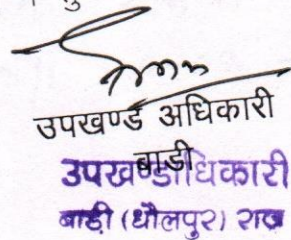 उपखण्ड अधिकारी
बाडी
उपखण्डाधिकारी
बाडी (धौलपुर) राज